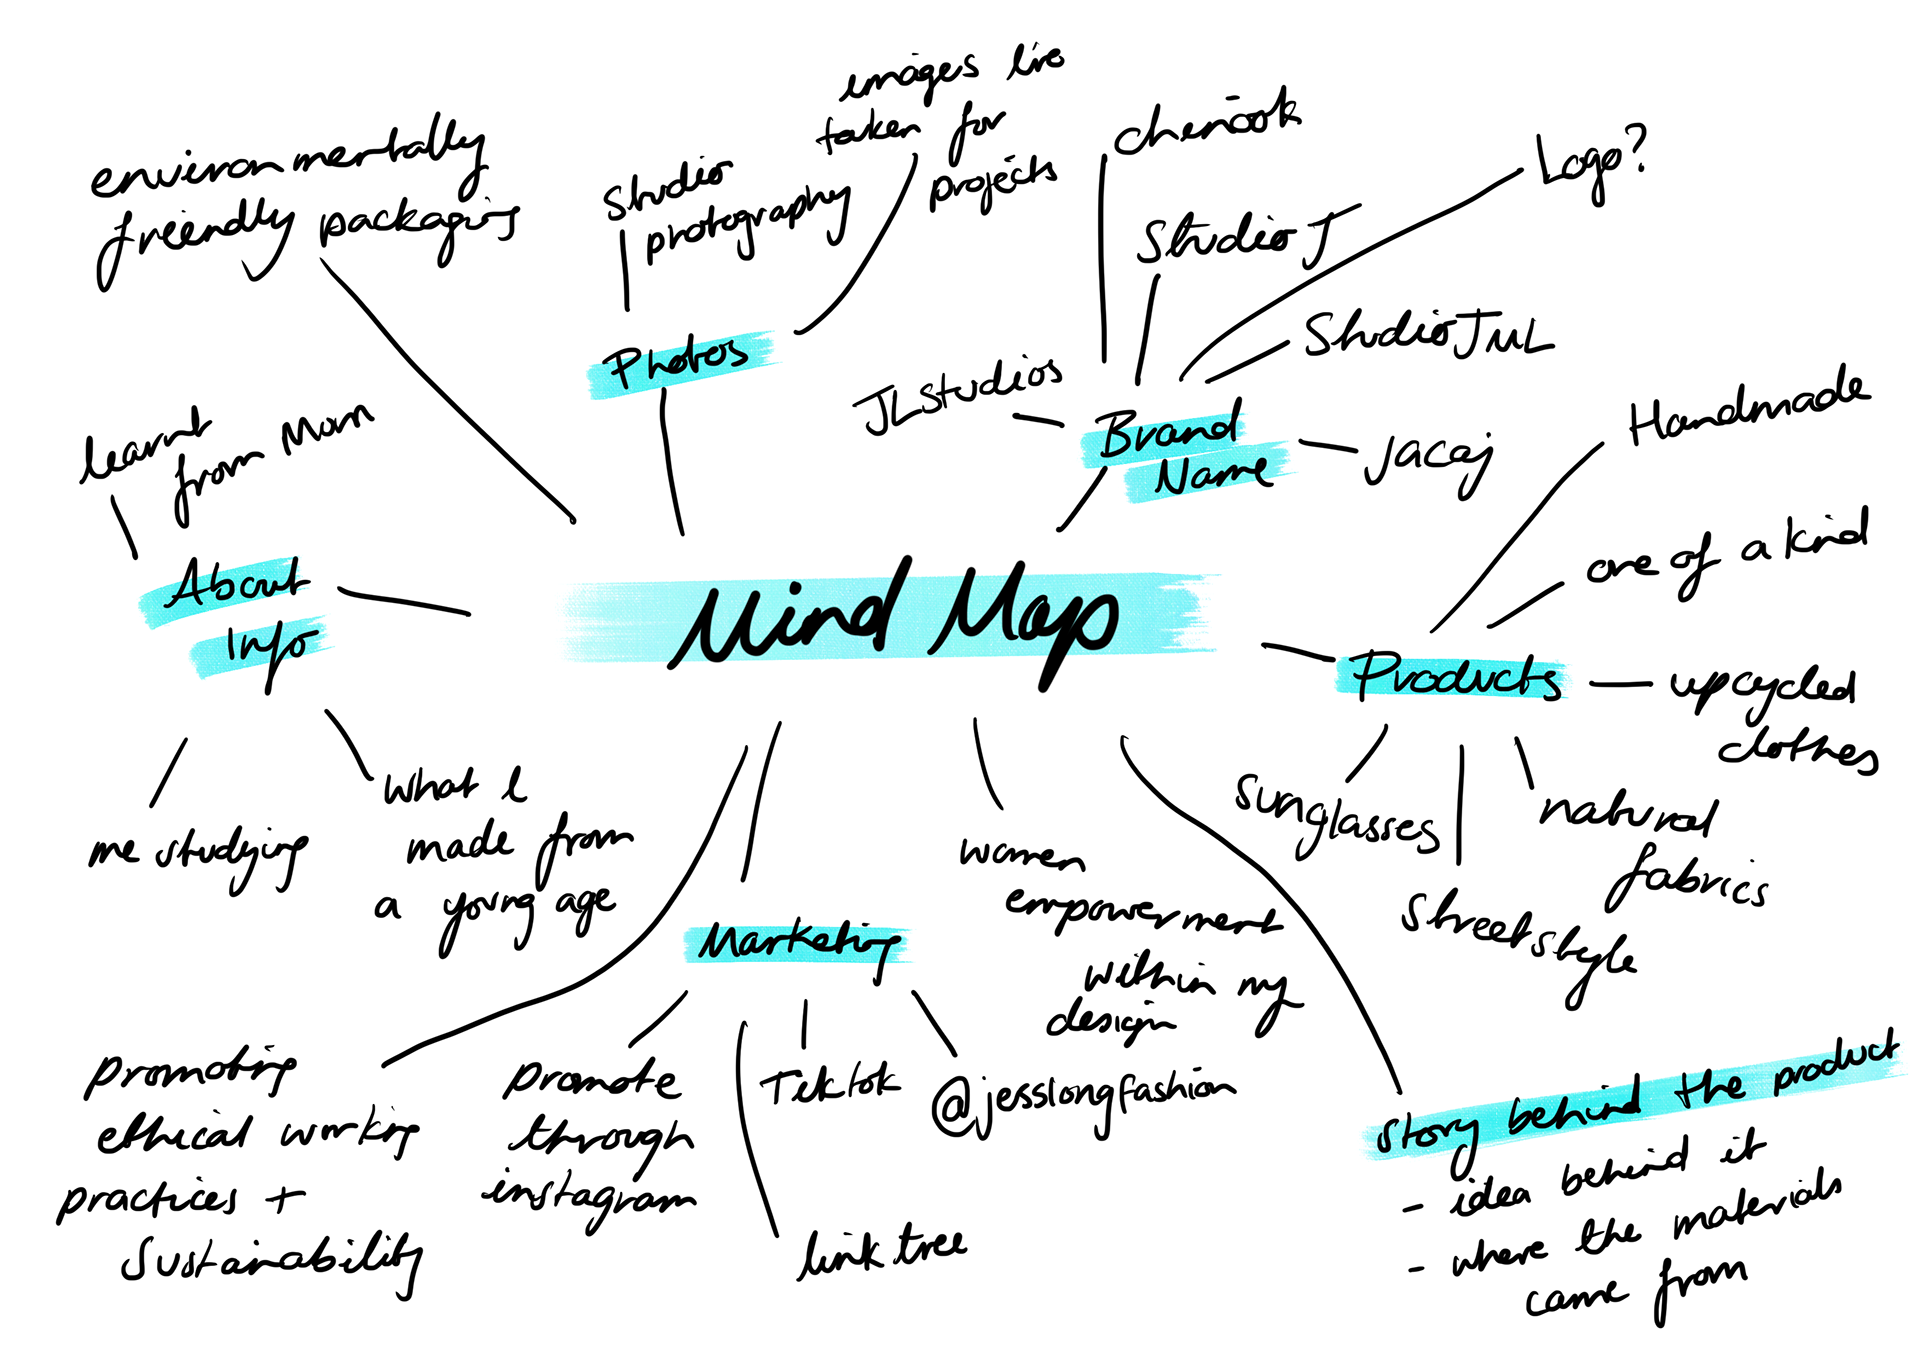 environmentally
friendly packaging
studio
photography
images i've
taken for
projects
chenook
StudioJ
Logo?
StudioJML
JLstudios
Brand
Name
Jacaj
Photos
learnt
from Mom
About
Info
me studying
what I
made from
a young age
Mind Map
Handmade
one of a kind
Products
upcycled
clothes
sunglasses
streetstyle
natural
fabrics
Marketing
promote
through
instagram
Tiktok
@jesslongfashion
link tree
women
empowerment
within my
design
promoting
ethical working
practices +
Sustainability
story behind the product
- idea behind it
- where the materials
came from